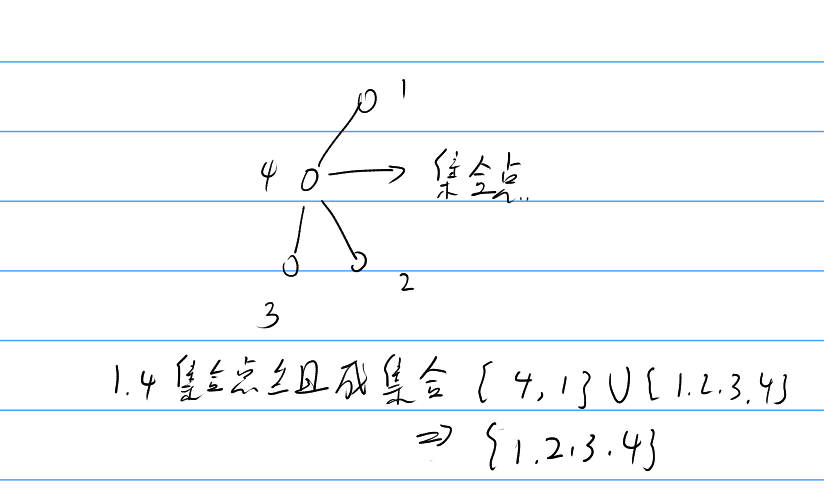 1
4 → 集合点
2
3
1.4 集合点组成集合 { 4, 1} ∪ { 1.2.3.4}
⇒ {1.2.3.4}